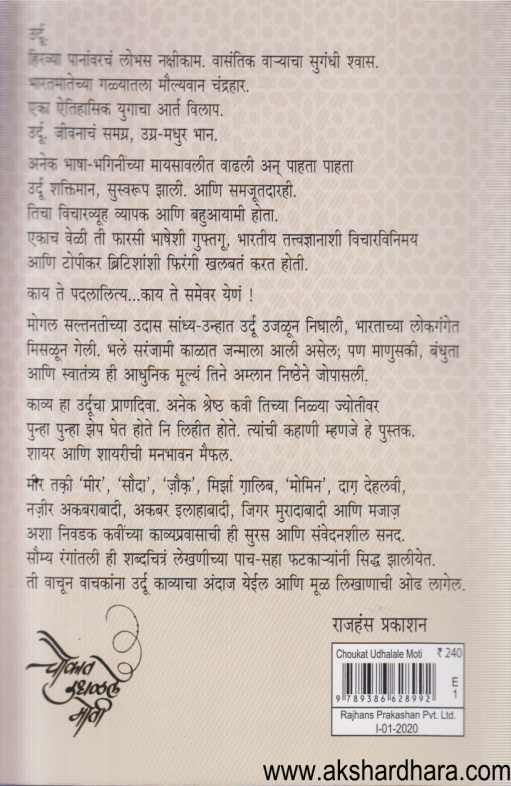 उर्दू.
हिरव्या पानांवरचं लोभस नक्षीकाम. वासंतिक वाऱ्याचा सुगंधी श्वास.
भारतमातेच्या गळ्यातला मौल्यवान चंद्रहार.
एका ऐतिहासिक युगाचा आर्त विलाप.
उर्दू. जीवनाचं समग्र, उग्र-मधुर भान.
अनेक भाषा-भगिनीच्या मायसावलीत वाढली अन् पाहता पाहता
उर्दू शक्तिमान, सुस्वरूप झाली. आणि समजूतदारही.
तिचा विचारव्यूह व्यापक आणि बहुआयामी होता.
एकाच वेळी ती फारसी भाषेशी गुफ्तगू, भारतीय तत्त्वज्ञानाशी विचारविनिमय
आणि टोपीकर ब्रिटिशांशी फिरंगी खलबतं करत होती.
काय ते पदलालित्य...काय ते समेवर येणं !
मोगल सल्तनतीच्या उदास सांध्य-उन्हात उर्दू उजळून निघाली, भारताच्या लोकगंगेत
मिसळून गेली. भले सरंजामी काळात जन्माला आली असेल; पण माणुसकी, बंधुता
आणि स्वातंत्र्य ही आधुनिक मूल्यं तिने अम्लान निष्ठेने जोपासली.
काव्य हा उर्दूचा प्राणदिवा. अनेक श्रेष्ठ कवी तिच्या निळ्या ज्योतीवर
पुन्हा पुन्हा झेप घेत होते नि लिहीत होते. त्यांची कहाणी म्हणजे हे पुस्तक.
शायर आणि शायरीची मनभावन मैफल.
मीर तक़ी 'मीर', 'सौदा', 'ज़ौक़', मिर्झा ग़ालिब, 'मोमिन', दाग़ देहलवी,
नज़ीर अकबराबादी, अकबर इलाहाबादी, जिगर मुरादाबादी आणि मजाज़
अशा निवडक कवींच्या काव्यप्रवासाची ही सुरस आणि संवेदनशील सनद.
सौम्य रंगांतली ही शब्दचित्रं लेखणीच्या पाच-सहा फटकाऱ्यांनी सिद्ध झालीयेत.
ती वाचून वाचकांना उर्दू काव्याचा अंदाज येईल आणि मूळ लिखाणाची ओढ लागेल.
राजहंस प्रकाशन
Choukat Udhalale Moti ₹ 240
9 789386 628992
E
1
Rajhans Prakashan Pvt. Ltd.
I-01-2020
चौकात
उधळले
मोती
www.akshardhara.com